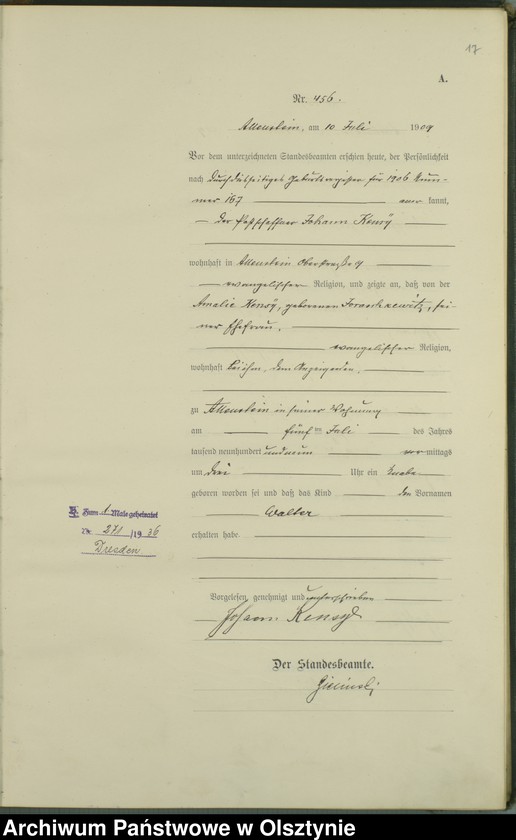 17
A.
Nr. 456.
Allenstein, am 10 Juli 1909
Vor dem unterzeichneten Standesbeamten erschien heute, der Persönlichkeit
nach durch diesseitiges Geburtsregister für 1906 Num-
mer 167 kannt,
der Postschaffner Johann
wohnhaft in Allenstein
evangelischer Religion, und zeigte an, daß von der
Amalie geborenen sei-
ner Ehefrau,
evangelischer Religion,
wohnhaft bei ihm, dem Anzeigenden,
zu Allenstein in seiner Wohnung
am fünften Juli des Jahres
tausend neunhundert undneun mittags
um drei Uhr ein Knabe
geboren worden sei und daß das Kind den Vornamen
Walter
erhalten habe.
Zum 1 Male geheiratet
Nr. /1936
Dresden.
Vorgelesen, genehmigt und unterschrieben
Johann
Der Standesbeamte.
Archiwum Państwowe w Olsztynie